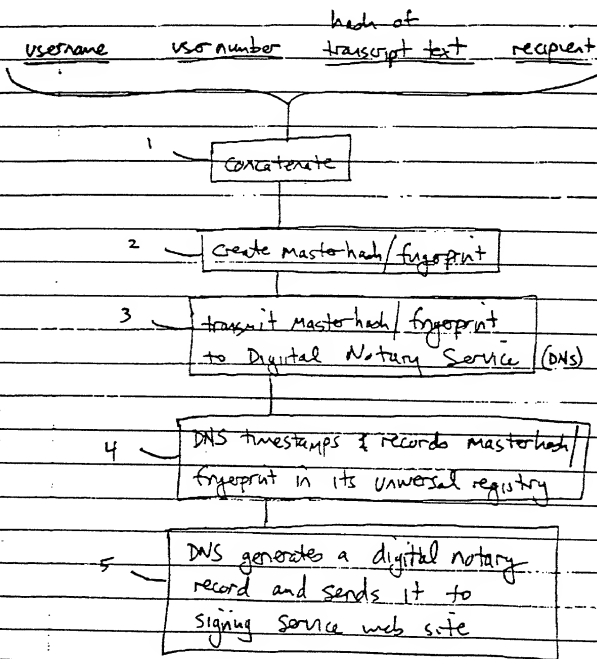 hash of
username user number transcript text recipient
1
concatenate
2
create masterhash/fingerprint
3
transmit masterhash/fingerprint
to Digital Notary Service (DNS)
4
DNS timestamps & records masterhash/
fingerprint in its universal registry
5
DNS generates a digital notary
record and sends it to
signing service web site